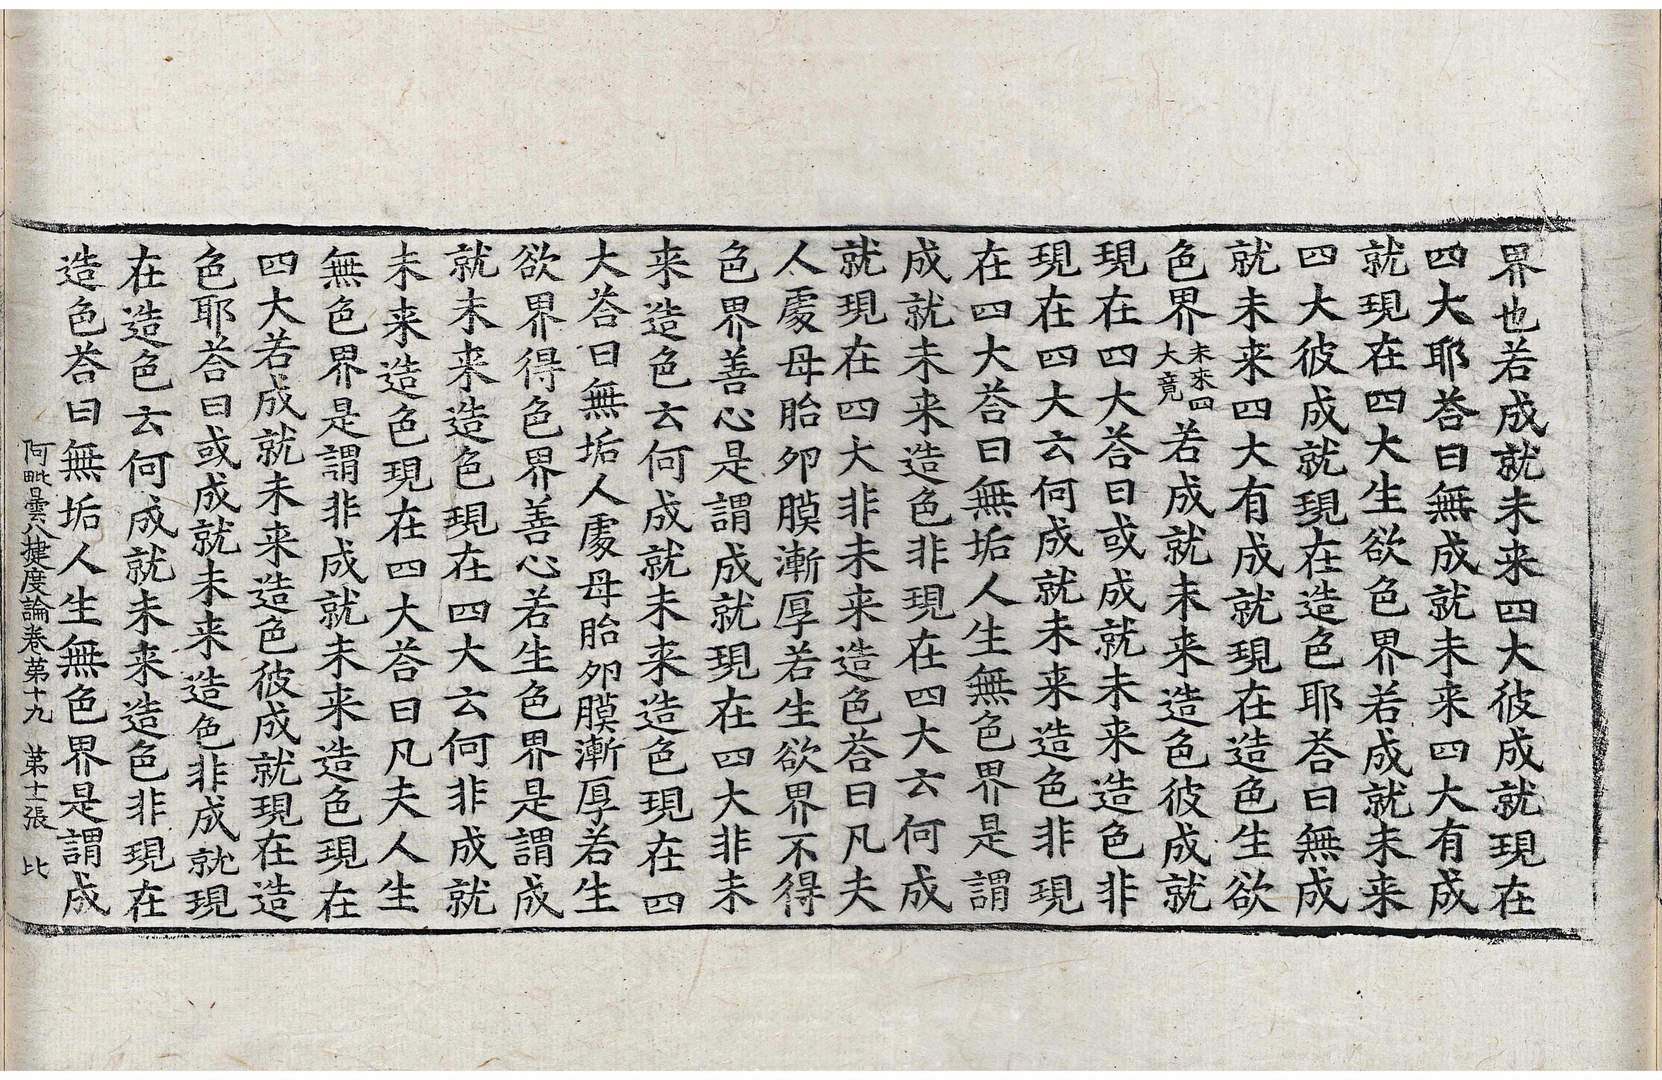 界也若成就未来四大彼成就現在
四大耶荅曰無成就未来四大有成
就現在四大生欲色界若成就未来
四大彼成就現在造色耶荅曰無成
就未来四大有成就現在造色生欲
色界未来四大竟若成就未来造色彼成就
現在四大荅曰或成就未来造色非
現在四大云何成就未来造色非現
在四大荅曰無垢人生無色界是謂
成就未来造色非現在四大云何成
就現在四大非未来造色荅曰凡夫
人處母胎卵膜漸厚若生欲界不得
色界善心是謂成就現在四大非未
来造色云何成就未来造色現在四
大荅曰無垢人處母胎卵膜漸厚若生
欲界得色界善心若生色界是謂成
就未来造色現在四大云何非成就
未来造色現在四大荅曰凡夫人生
無色界是謂非成就未来造色現在
四大若成就未来造色彼成就現在造
色耶荅曰或成就未来造色非成就現
在造色云何成就未来造色非現在
造色荅曰無垢人生無色界是謂成
阿毗曇八揵度論卷第十九 第十一張 比